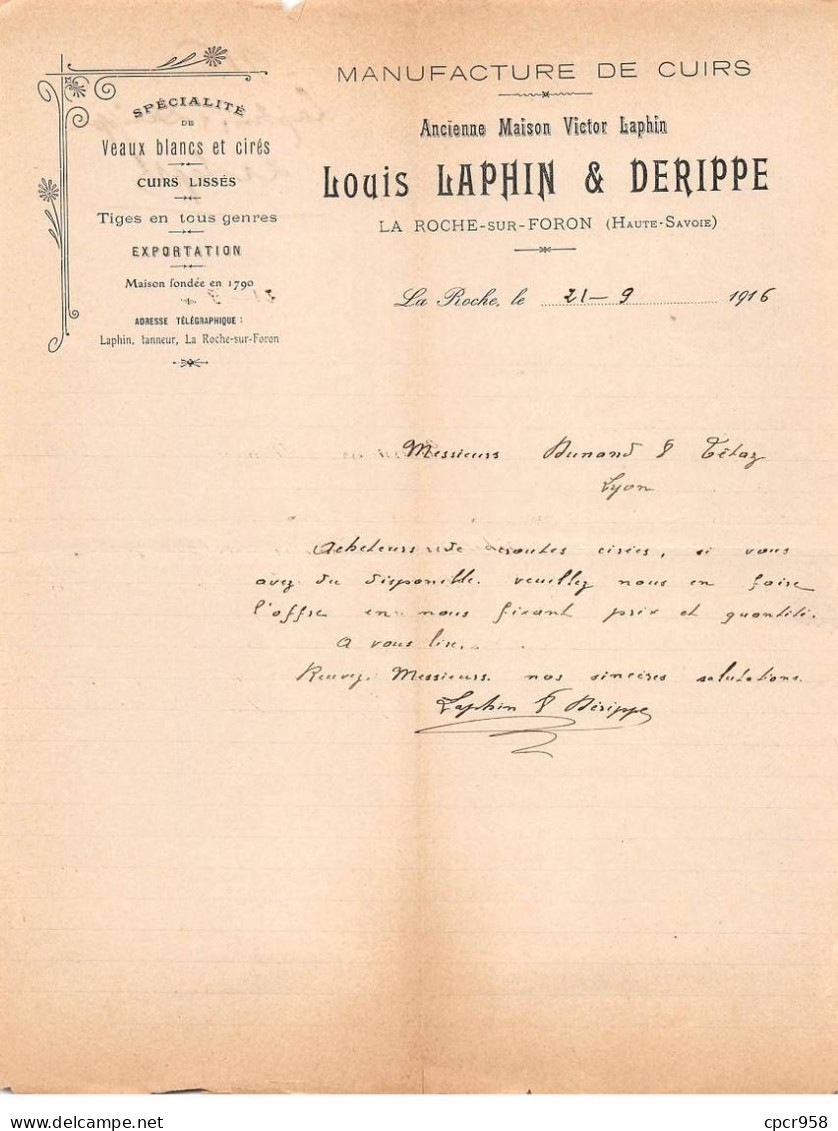 SPÉCIALITÉ
DE
Veaux blancs et cirés
CUIRS LISSÉS
Tiges en tous genres
EXPORTATION
Maison fondée en 1790
ADRESSE TÉLÉGRAPHIQUE :
Laphin, tanneur, La Roche-sur-Foron
MANUFACTURE DE CUIRS
Ancienne Maison Victor Laphin
Louis LAPHIN & DERIPPE
LA ROCHE-SUR-FORON (HAUTE-SAVOIE)
La Roche, le 21-9 1916
Messieurs Dunand & Tétaz
Lyon
Acheteurs de croutes cirées, si vous
avez du disponible. veuillez nous en faire
l'offre en nous fixant prix et quantité.
A vous lire,
Recevez Messieurs. nos sincères salutations.
Laphin & Dérippe
cpcr958